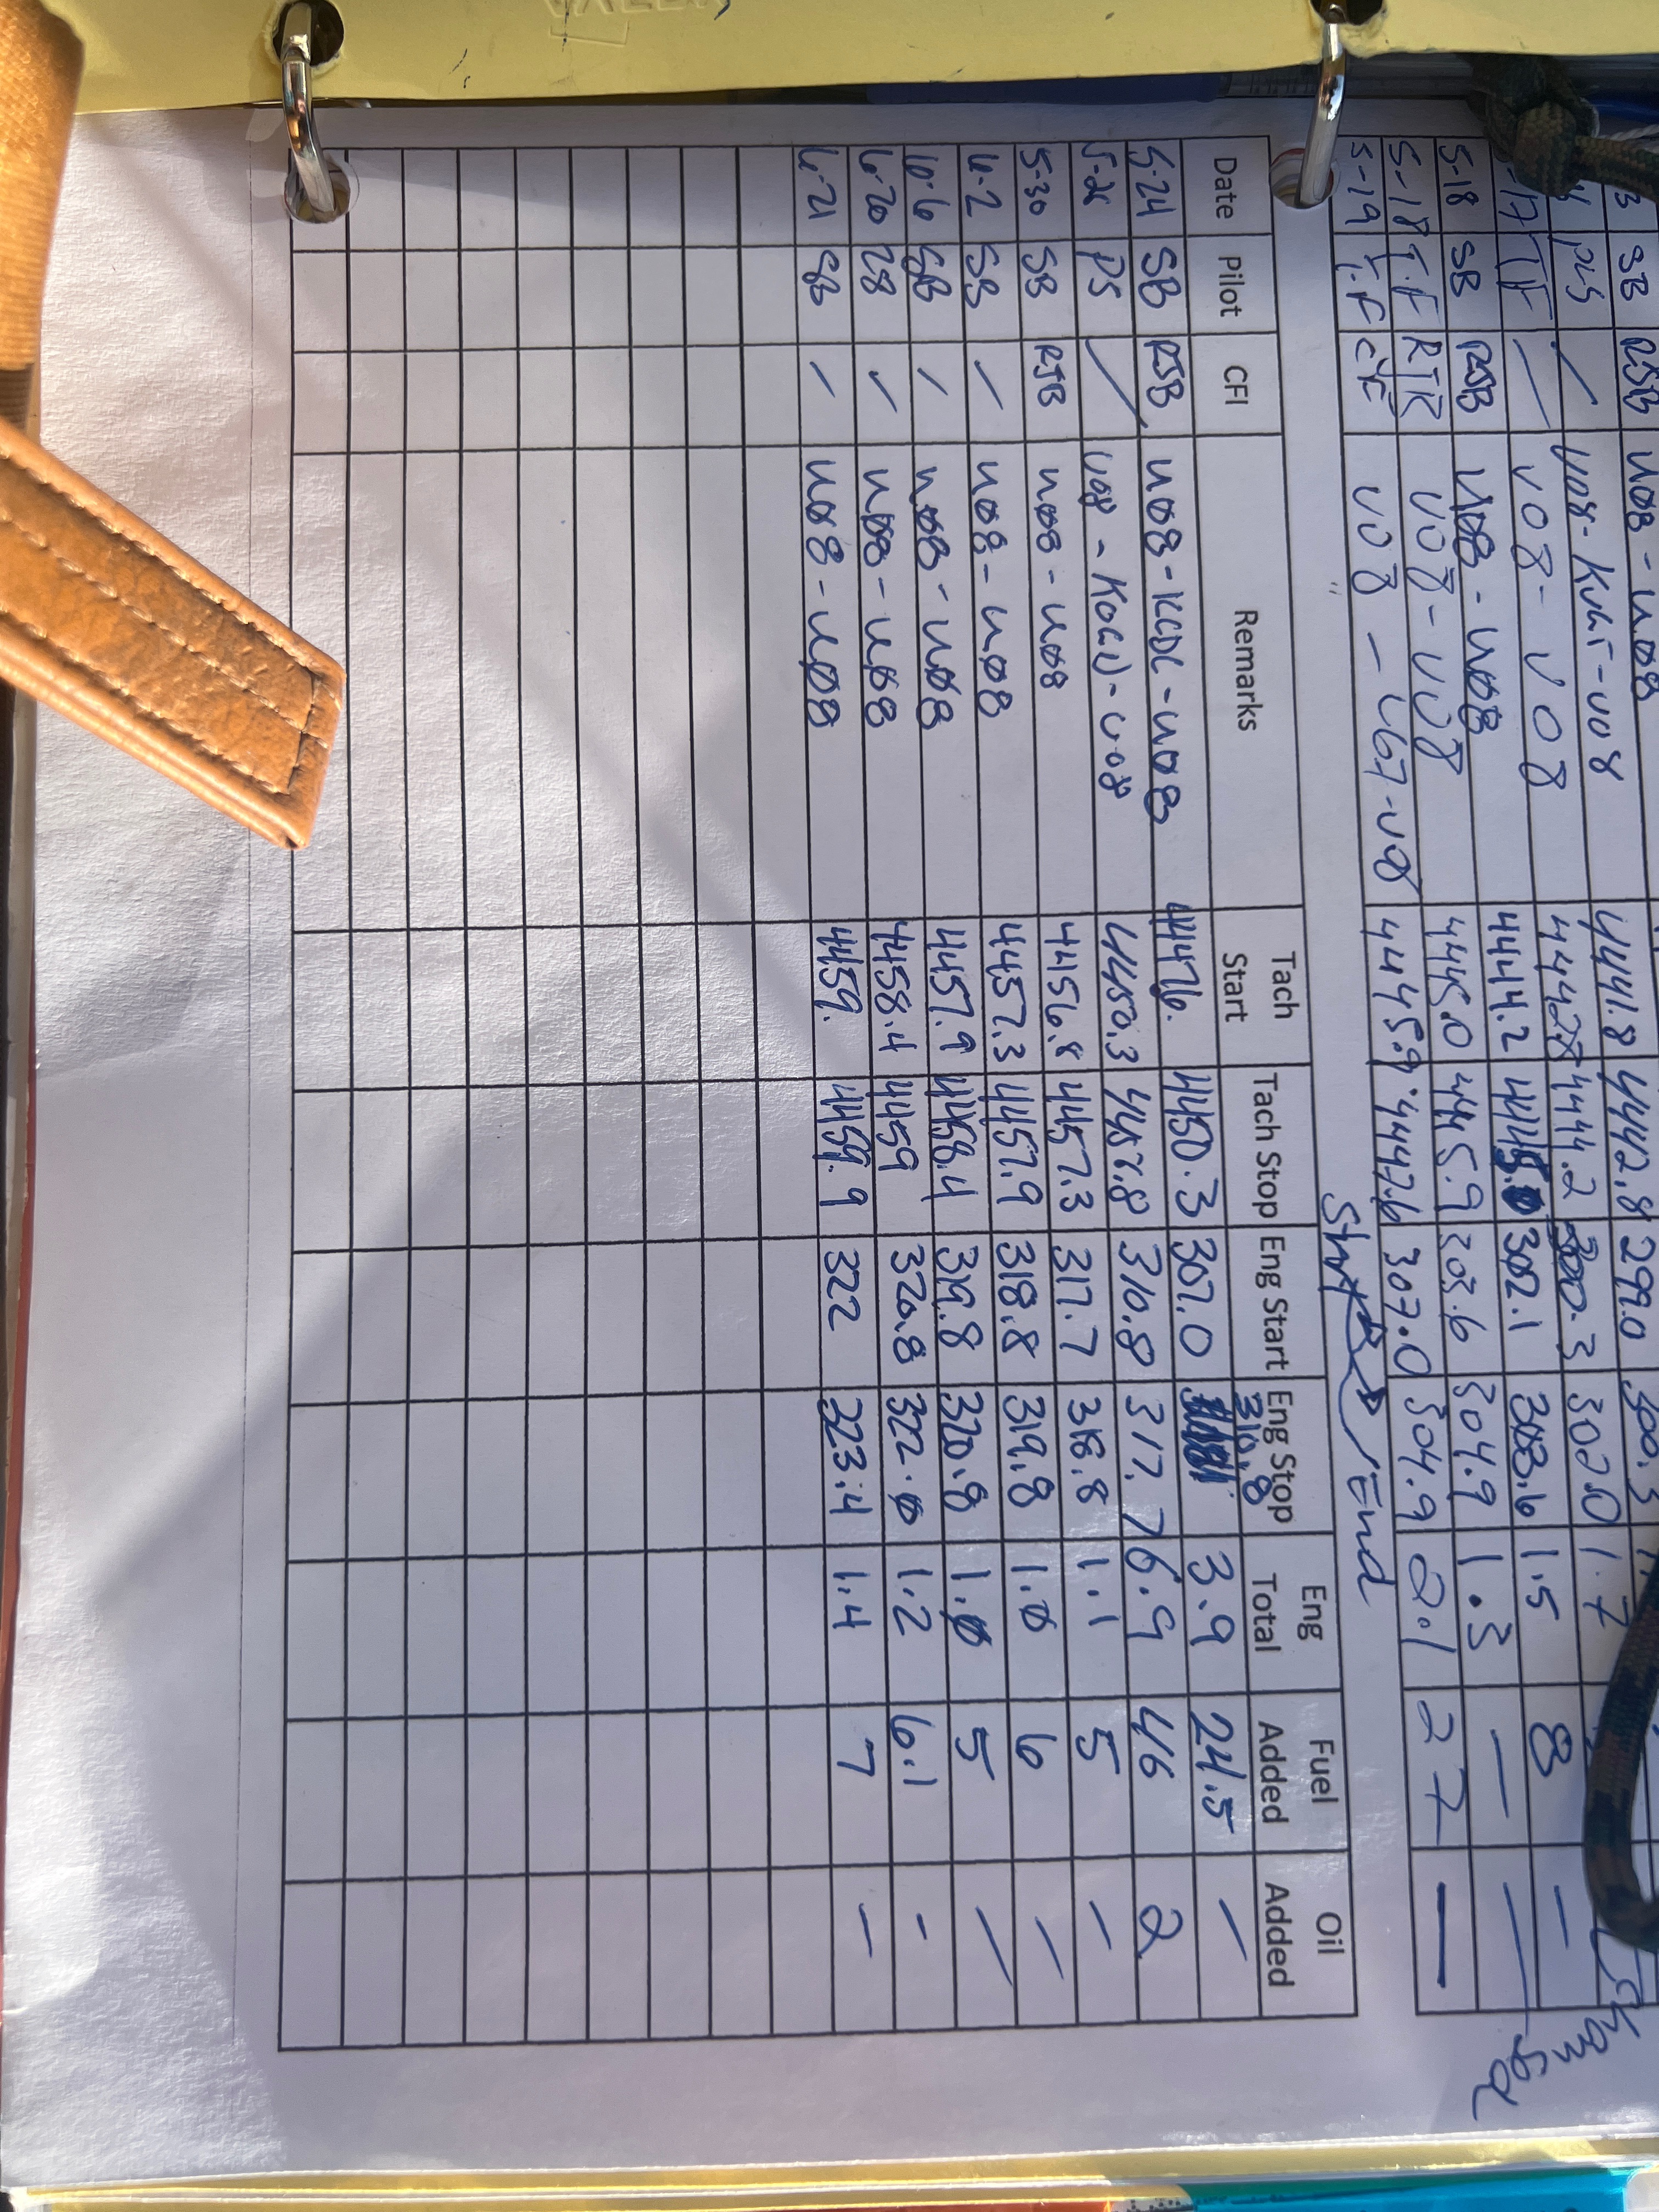 3 SB RSB U08 - U08
PLS / U08 - 4441.8 4442.8 299.0 300.3
17 TF — U08 - U08 4442.8 4444.2 300.3 302.0 1.7
5-18 SB RSB U08 - U08 4444.2 4445.0 302.1 303.6 1.5 8 —
5-18 T.F RTR U08 - U08 4445.0 4445.9 303.6 304.9 1.3 — —
5-19 T.F U08 - L67 - U08 4445.9 4447.6 307.0 304.9 2.1 27 —
" Start / End
Date Pilot CFI Remarks Tach Start Tach Stop Eng Start Eng Stop Eng Total Fuel Added Oil Added
5-24 SB RSB U08 - KCDC - U08 4447.6. 4450.3 307.0 310.8 3.9 24.5 —
5-26 PS / U08 - KOGD - U08 4450.3 310.8 317.7 6.9 46 2
5-30 SB RSB U08 - U08 4456.8 4457.3 317.7 318.8 1.1 5 —
6-2 SB / U08 - U08 4457.3 4457.9 318.8 319.8 1.0 6 —
SB / U08 - U08 4457.9 4458.4 319.8 320.8 1.0 5 —
6-20 / U08 - U08 4458.4 4459 320.8 322.0 1.2 6.1 -
6-21 SB / U08 - U08 4459. 4459.9 322 323.4 1.4 7 —